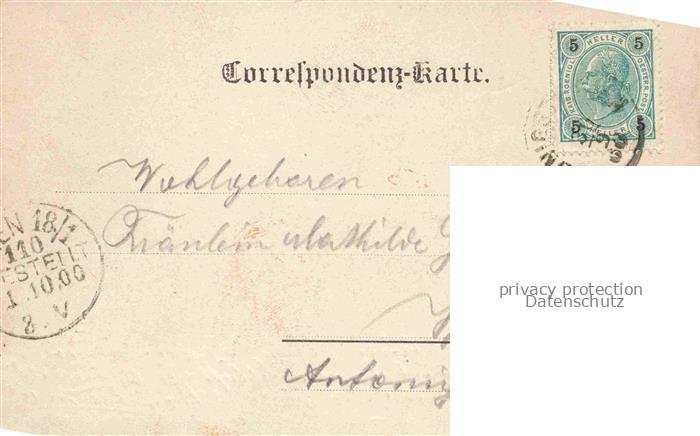 Correspondenz-Karte.
5 HELLER 5
KAIS. KOENIGL. OESTERR. POST
5 HELLER 5
Wohlgeboren
Fräulein Mathilde G
EN 18/1
110
ESTELLT
1.10.00
8. V
privacy protection
Datenschutz